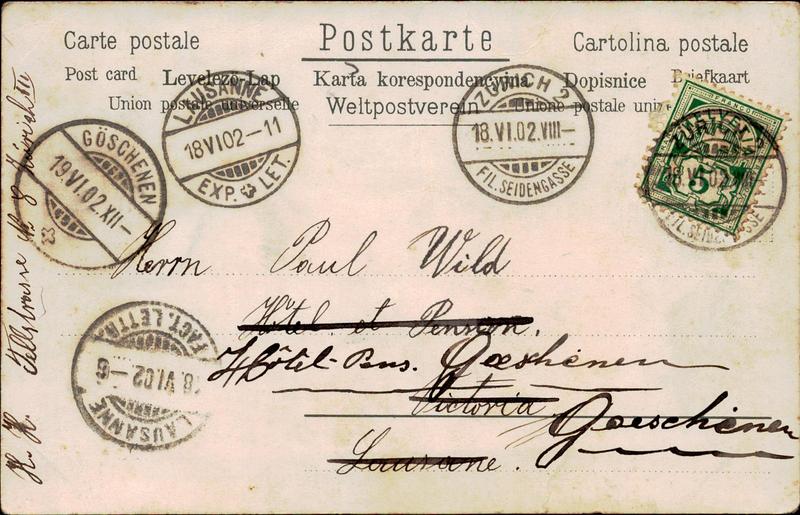 Carte postale Postkarte Cartolina postale
Post card Levelezö-Lap Karta korespondencyjna Dopisnice Briefkaart
Union postale universelle Weltpostverein Unione postale
LAUSANNE
18 VI 02-11
EXP. LET.
ZÜRICH 2
18.VI.02.VIII-
FIL. SEIDENGASSE
GÖSCHENEN
19.VI.02.XII-
FRANCO
HELVETIA
5
ZÜRICH 2
18.VI.02.
FIL. SEIDENGASSE
Herrn Paul Wild
Hôtel et Pension.
Hôtel-Pens. Goeschenen
Victoria
Goeschenen
Lausanne.
FACT. LETTR.
18 VI 02-6
LAUSANNE
H. H. Zürich III